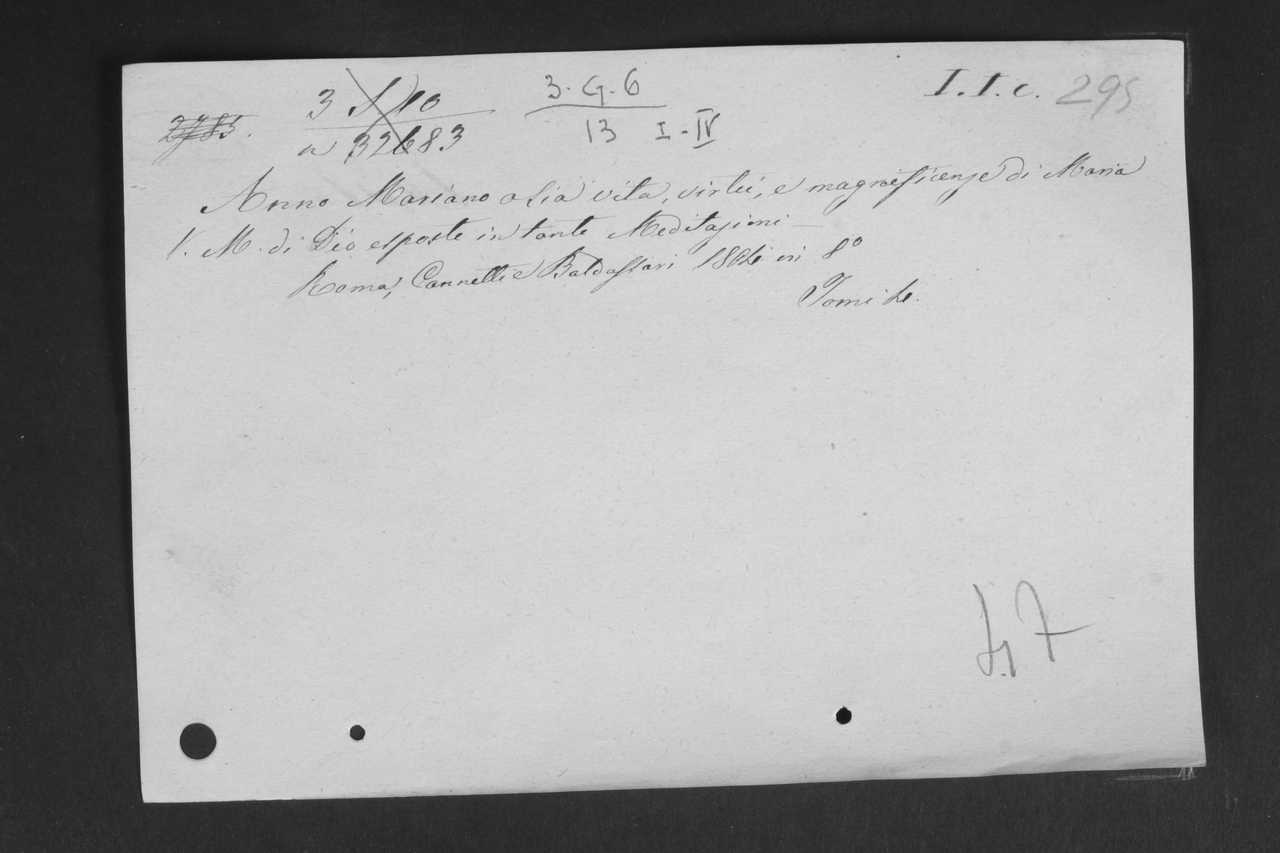 3. G. 6 I.I.c. 295
2783. 3 S 10
a 32683 13 I-IV
Anno Mariano osia vita, virtù, e magnificenze di Maria
V. M. di Dio esposte in tante Meditazioni
Roma, Cannetti e Baldassari 1864 in 8º
Tomi 4.
47